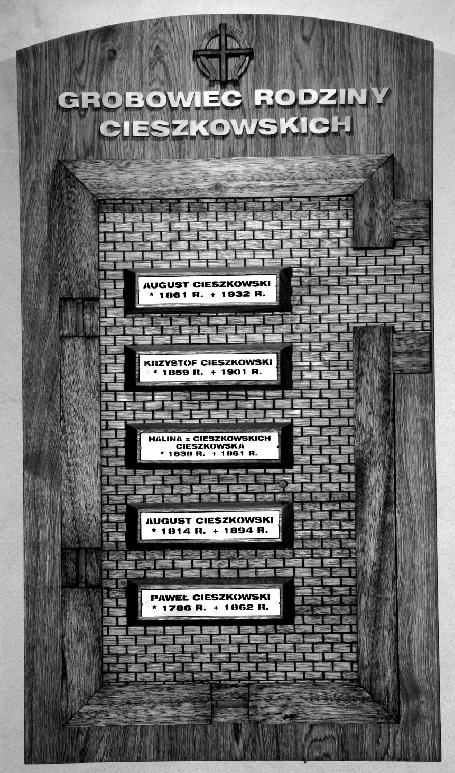 GROBOWIEC RODZINY
CIESZKOWSKICH
AUGUST CIESZKOWSKI
* 1861 R. + 1932 R.
KRZYSTOF CIESZKOWSKI
* 1859 R. + 1901 R.
HALINA z CIESZKOWSKICH
CIESZKOWSKA
* 1838 R. + 1861 R.
AUGUST CIESZKOWSKI
* 1814 R. + 1894 R.
PAWEŁ CIESZKOWSKI
* 1786 R. + 1862 R.